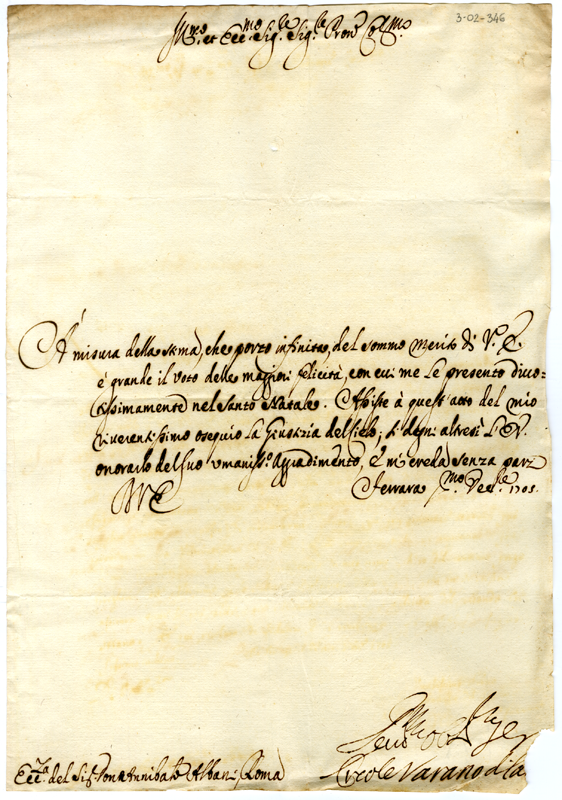 3-02-346
Ill.mo et Ecc.mo Sig.re Sig.re Pron Col.mo
A misura della stima, che porto infinita, del sommo Merito di V. E.
è grande il Voto delle maggiori felicità, con cui me le presento divo-
tissimamente nel Santo Natale. Assiste à quest' atto del mio
riverentissimo ossequio la Giustizia del Cielo; si degni altresì l' E. V.
onorarlo del suo umaniss.o Aggradimento, è mi creda senza
Ferrara p.mo Xbre 1705.
Ercole Varano di Ca
Ecc.za del Sig. Don Annibale Albani, Roma